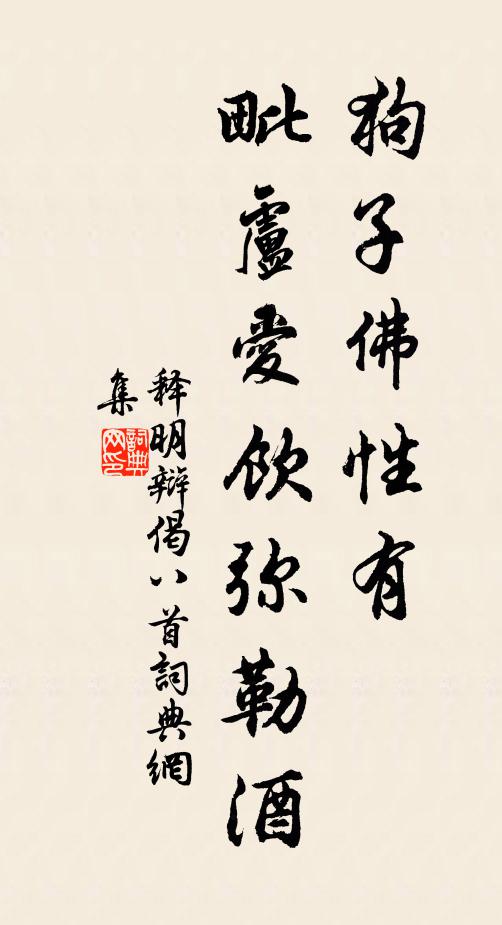 狗子佛性有
毗盧愛飲弥勒酒
释明辩偈八首詞典網
集
詞典
网印